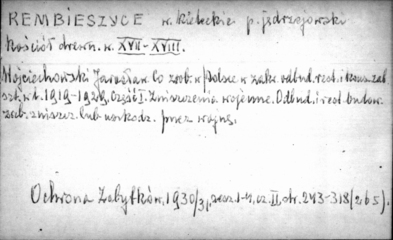 REMBIESZYCE w. kieleckie p. jędrzejowski
Kościół drewn. w. XVII-XVIII.
Wojciechowski Jarosław. Co zrob. w Polsce w zakr. odbud. rest. i konse. zab.
szt. w l. 1919-1929. Część I. Zniszczenia wojenne. Odbud. i rest. budow.
zab. zniszcz. lub uszkodz. przez wojnę.
Ochrona Zabytków, 1930/31, zesz. 1-4, cz. II, str. 243-318 (265).